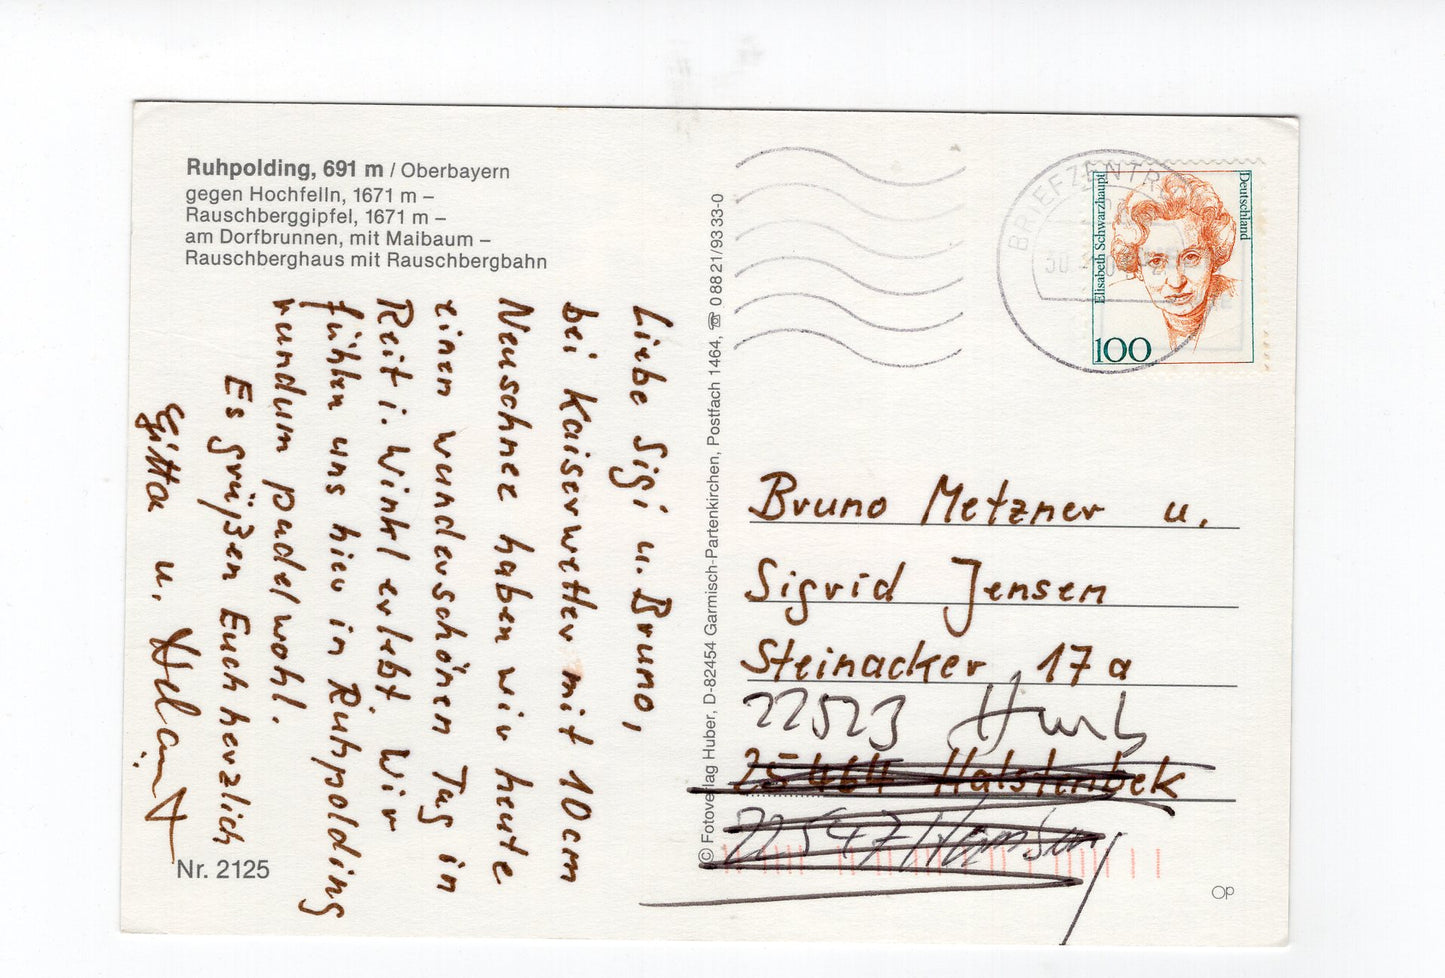 Ruhpolding, 691 m / Oberbayern
gegen Hochfelln, 1671 m –
Rauschberggipfel, 1671 m –
am Dorfbrunnen, mit Maibaum –
Rauschberghaus mit Rauschbergbahn
Liebe Sigi u. Bruno,
bei Kaiserwetter mit 10 cm
Neuschnee haben wir heute
einen wunderschönen Tag in
Reit i. Winkl erlebt. Wir
fühlen uns hier in Ruhpolding
rundum pudelwohl.
Es grüßen Euch herzlich
Gitta u. Helmut
Nr. 2125
© Fotoverlag Huber, D-82454 Garmisch-Partenkirchen, Postfach 1464, ☏ 0 88 21/93 33-0
BRIEFZENTRUM
30
Deutschland
Elisabeth Schwarzhaupt
100
Bruno Metzner u.
Sigrid Jensen
Steinacker 17a
22523 Hmb
25464 Halstenbek
22547 Hamburg
OP